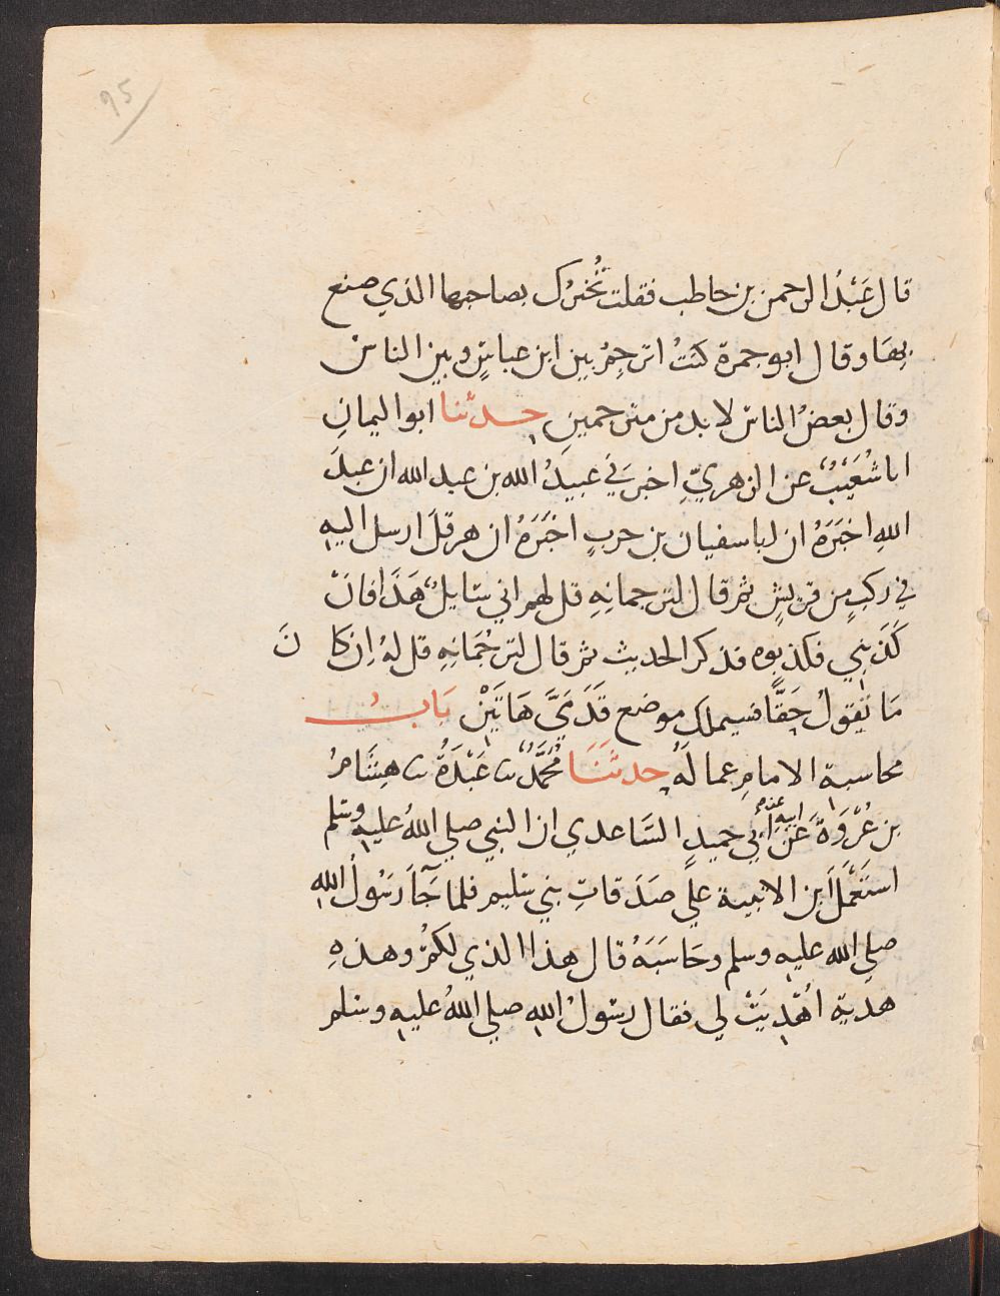 95
قال عَبْدُ الرحمن بن حاطب فقلت تُخبرك بصاحبها الذي صنع
بِهَا وقال ابو جمرة كنتُ اترجِمُ بين ابن عباسٍ وبين الناس
وقال بعضُ الناس لا بد من مترجمينِ حدثنا ابو اليمانِ
انا شُعَيْبٌ عن الزهريِّ اخبرَني عبيدُ الله بن عبد الله ان عبدَ
اللهِ اخبَرَهُ ان ابا سفيان بن حربٍ اخبَرَهُ ان هرقلَ ارسل اليهِ
في ركبٍ من قريشٍ ثم قال لترجمانهِ قل لهم اني سايلٌ هَذَا فانْ
كَذَبَنِي فكذبوه فذكر الحديث ثم قال لترجُمَانِهِ قل لهُ اِن كَا نَ
مَا تَقولُ حَقًّا فسيملك موضع قَدَمَيَّ هَاتَيْنِ بَابُ
محاسبة الامامِ عماله حدثَنَا مُحَمَّدٌ نا عَبْدَةُ نا هِشَامُ
بن عُرْوَةَ عَن ابيه عن ابي حميدٍ السَاعدي ان النبي صلي اللهُ عليه وسلم
استَعْمَلَ ابن الاتبية علي صَدَقاتِ بني سليم فلما جَآ رَسُولُ اللهِ
صلي الله عليه وسلم وحَاسَبَهُ قال هذا الذي لكمُ وهذهِ
هدية اُهْدِيَتْ لي فقال رسولُ اللهِ صلي اللهُ عليه وسلم